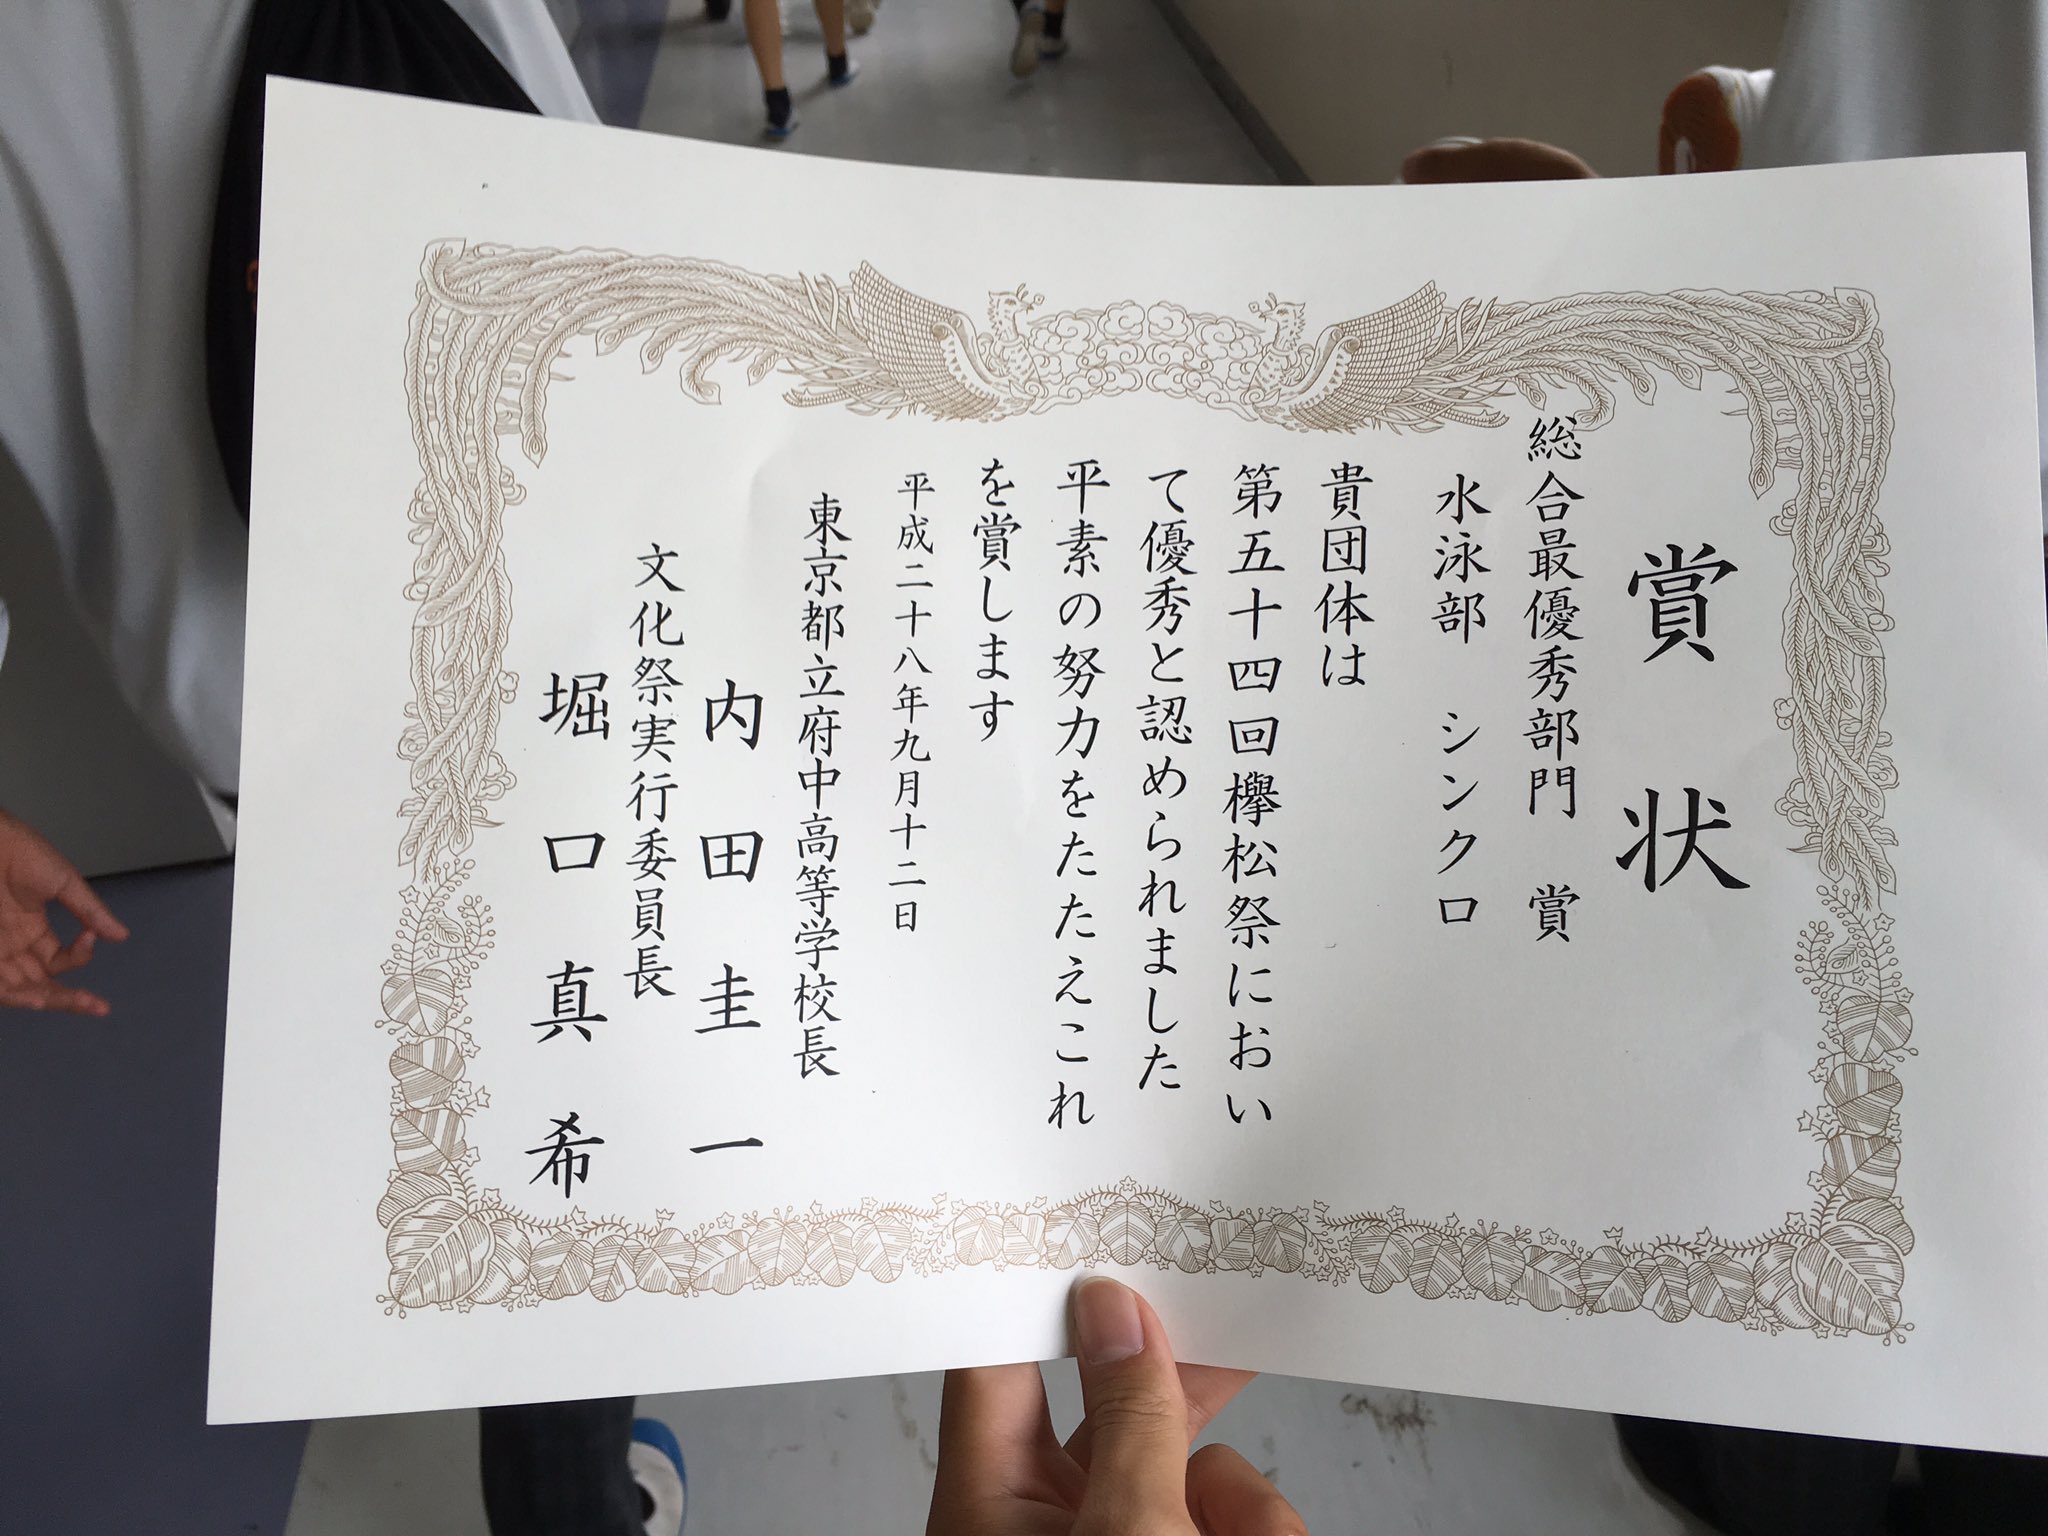 賞状
総合最優秀部門 賞
水泳部 シンクロ
貴団体は
第五十四回欅松祭におい
て優秀と認められました
平素の努力をたたえこれ
を賞します
平成二十八年九月十二日
東京都立府中高等学校長
内田圭一
文化祭実行委員長
堀口真希